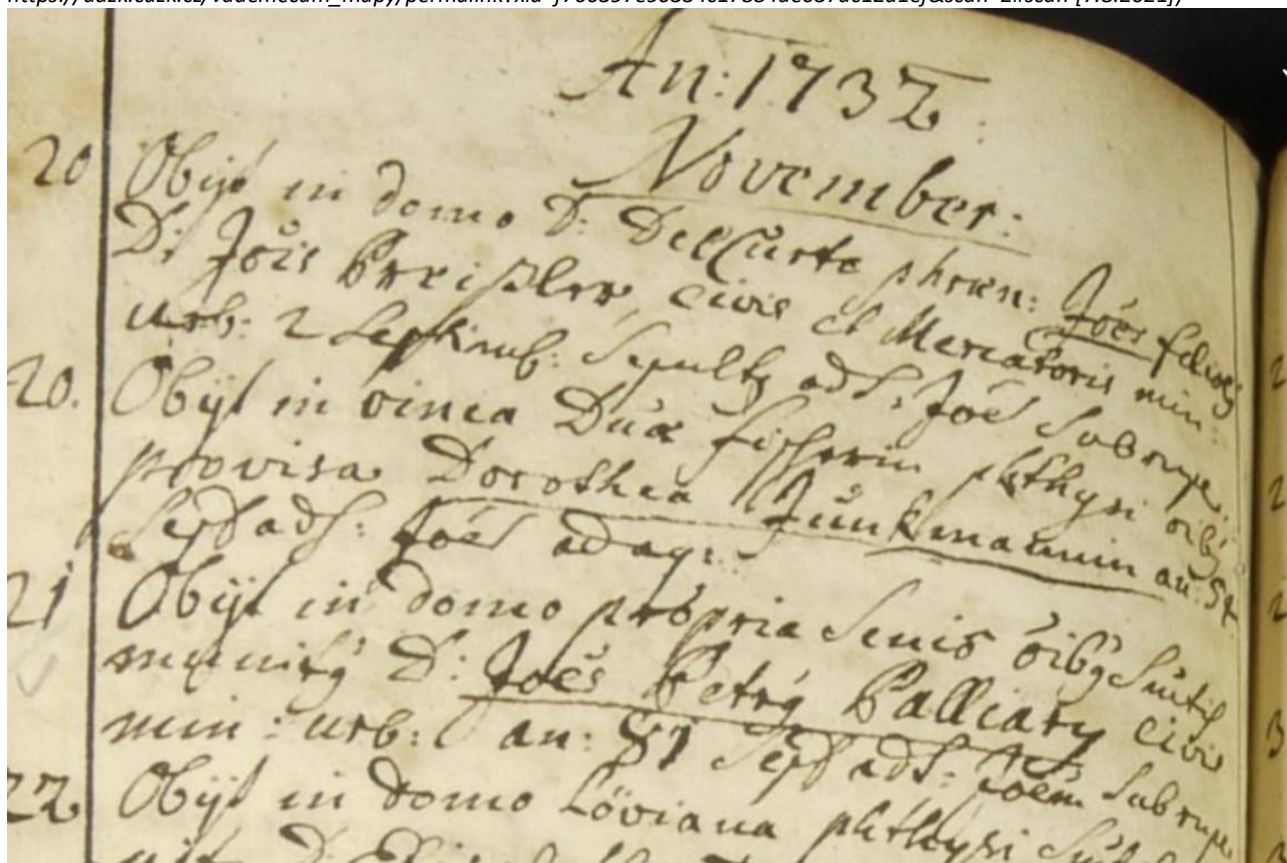 An: 1732.
November:
20 Obijt in domo D: DelCurto phren: Joes filius
D: Jois Preisler, civis et Mercatoris min:
urb: 2 Septimb: Sepult9 ad S: Joe Sub rupe:
20. Obijt in vinea Dnae Fischerin phthysi oib9
provisa Dorothea Junkmannin an: 54
Sep ad S: Joe ad aq:
21 Obijt in domo propria Senis oib9
munit9 D: Joes Petrg Palliary Civis
min: urb: an: 81 Sep ad S: Joem Sub rupe
22 Obijt in domo Löviana phthysi